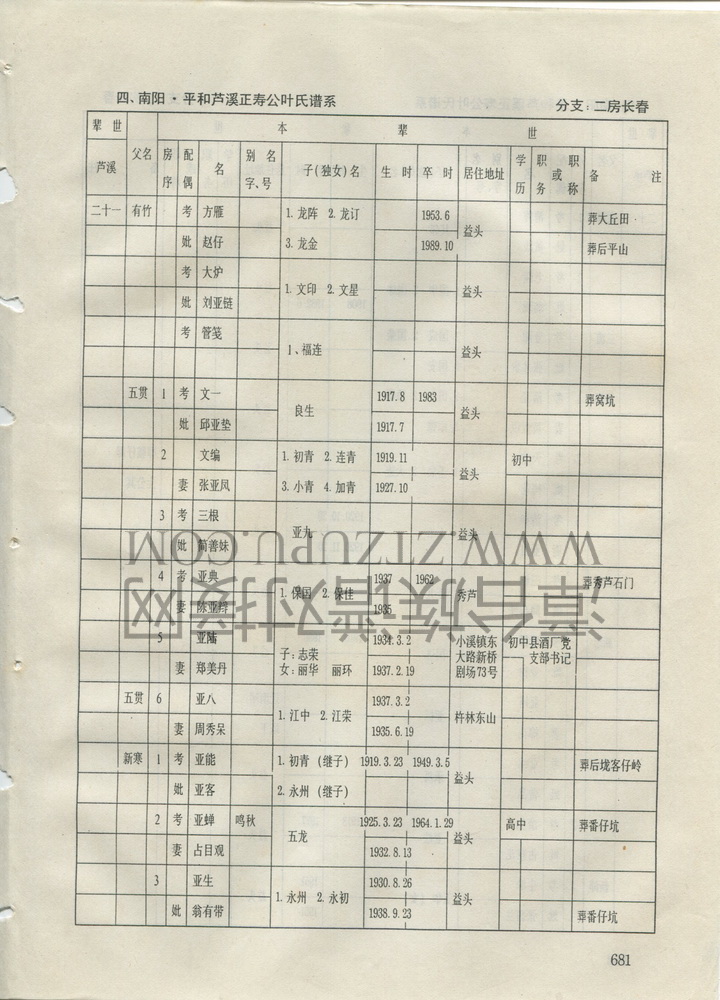 四、南阳·平和芦溪正寿公叶氏谱系 分支：二房长春
辈世 本 辈 世
芦溪 父名 房序 配偶 名 别名字、号 子(独女)名 生时 卒时 居住地址 学历 职务或职称 备注
二十一 有竹 考 方雁 1.龙阵 2.龙订 1953.6 益头 葬大丘田
妣 赵仔 3.龙金 1989.10 葬后平山
考 大炉 1.文印 2.文星 益头
妣 刘亚链
考 管笺 1、福连 益头
五贯 1 考 文一 良生 1917.8 1983 益头 葬窝坑
妣 邱亚垫 1917.7
2 文编 1.初青 2.连青 1919.11 益头 初中
妻 张亚凤 3.小青 4.加青 1927.10
3 考 三根 亚九 益头
妣 简善妹
4 考 亚典 1.保国 2.保佳 1937 1962 秀芦 葬秀芦石门
妻 陈亚 1935
5 亚陆 子：志荣 1934.3.2 小溪镇东大路新桥剧场73号 初中 县酒厂党支部书记
妻 郑美丹 女：丽华 丽环 1937.2.19
五贯 6 亚八 1.江中 2.江荣 1937.3.2 杵林东山
妻 周秀呆 1935.6.19
新寒 1 考 亚能 1.初青（继子） 1919.3.23 1949.3.5 益头 葬后垅客仔岭
妣 亚客 2.永州（继子）
2 考 亚蝉 鸣秋 五龙 1925.3.23 1964.1.29 益头 高中 葬番仔坑
妻 占目观 1932.8.13
3 亚生 1.永州 2.永初 1930.8.26 益头
妣 翁有带 1938.9.23 葬番仔坑
681
WWW.ZTZUPU.COM
漳台族谱对接网